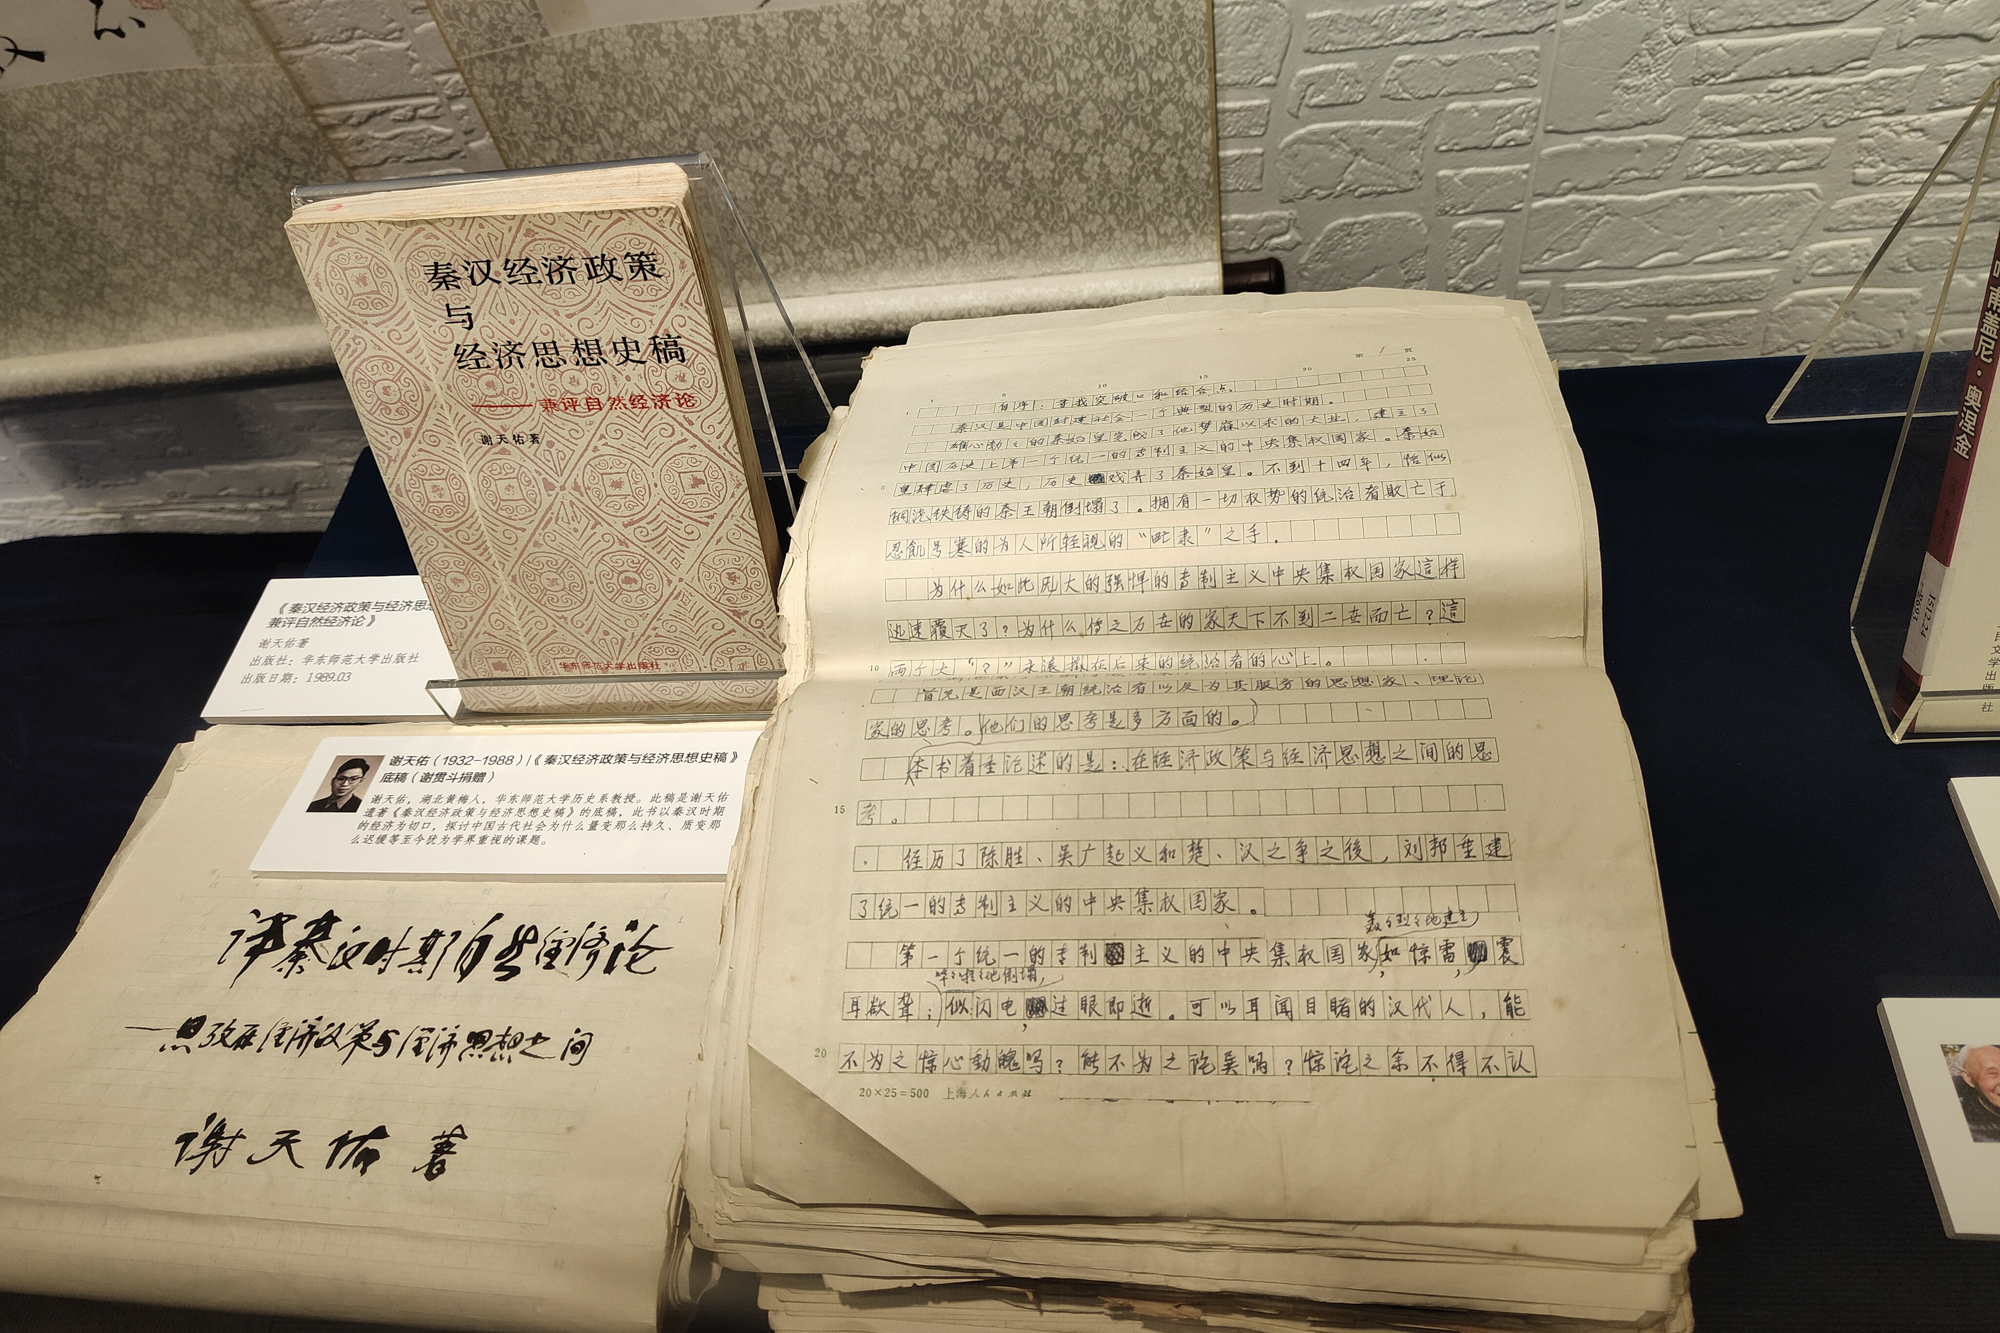 秦汉经济政策
与
经济思想史稿
——兼评自然经济论
谢天佑著
华东师范大学出版社
《秦汉经济政策与经济思
兼评自然经济论》
谢天佑著
出版社：华东师范大学出版社
出版日期：1989.03
谢天佑（1932-1988）|《秦汉经济政策与经济思想史稿》
底稿（谢贯斗捐赠）
谢天佑，湖北黄梅人，华东师范大学历史系教授。此稿是谢天佑
遗著《秦汉经济政策与经济思想史稿》的底稿，此书以秦汉时期
的经济为切口，探讨中国古代社会为什么量变那么持久、质变那
么迟缓等至今犹为学界重视的课题。
评秦汉时期自然经济论
—思考在经济政策与经济思想之间
谢天佑 著
第 1 页
自序：寻找突破口和结合点
秦汉是中国封建社会一个典型的历史时期。
雄心勃々的秦始皇完成了他梦寐以求的大业，建立了
中国历史上第一个统一的专制主义的中央集权国家。秦始
皇肆虐了历史，历史戏弄了秦始皇。不到十四年，恰似
铜浇铁铸的秦王朝倒塌了。拥有一切权势的统治者败亡于
忍飢号寒的为人所轻视的“甿隶”之手。
为什么如此庞大的强悍的专制主义中央集权国家這样
迅速覆灭了？为什么传之万世的家天下不到二世而亡？這
两个大“？”永远撳在后来的统治者的心上。
首先是西汉王朝统治者以及为其服务的思想家、理论
家的思考。他们的思考是多方面的。
本书着重论述的是：在经济政策与经济思想之间的思
考。
经历了陈胜、吴广起义和楚、汉之争之後，刘邦重建
了统一的专制主义的中央集权国家。
轰々烈々地建立，
第一个统一的专制主义的中央集权国家如惊雷震
哗啦啦地倒塌，
耳欲聋；似闪电过眼即逝。可以耳闻目睹的汉代人，能
不为之惊心動魄吗？能不为之诧异吗？惊诧之余不得不认
20×25=500 上海人民出版社
南普尼·奥涅金
1512.24